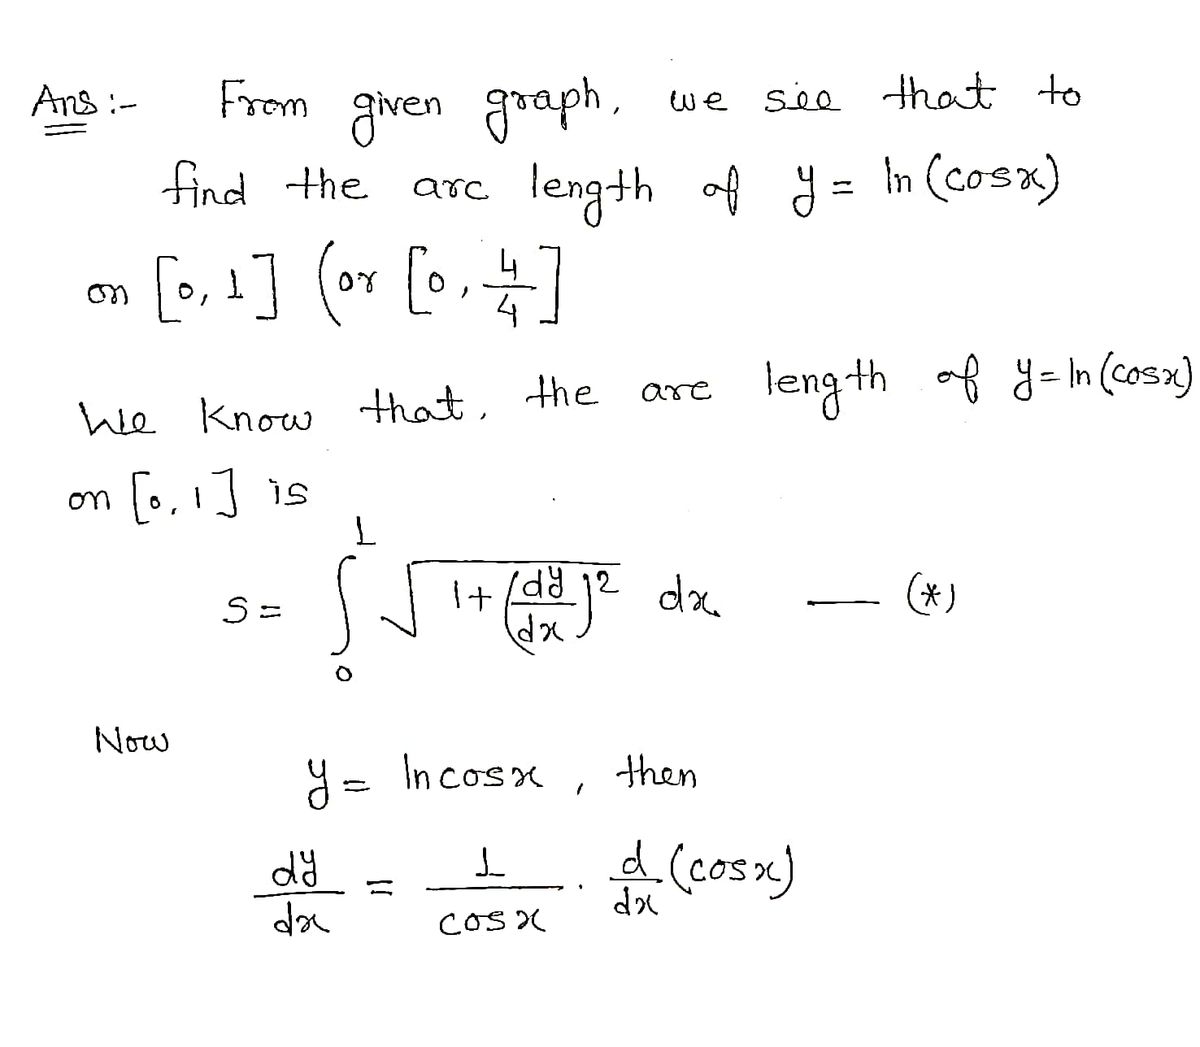 Ans :- From given graph, we see that to
find the arc length of y = ln (cosx)
on [0, 1] (or [0, 4/4]
We know that, the arc length of y = ln (cosx)
on [0, 1] is
S = ∫₀¹ √(1 + (dy/dx)²) dx — (*)
Now
y = ln cosx , then
dy/dx = 1/cosx · d/dx (cosx)